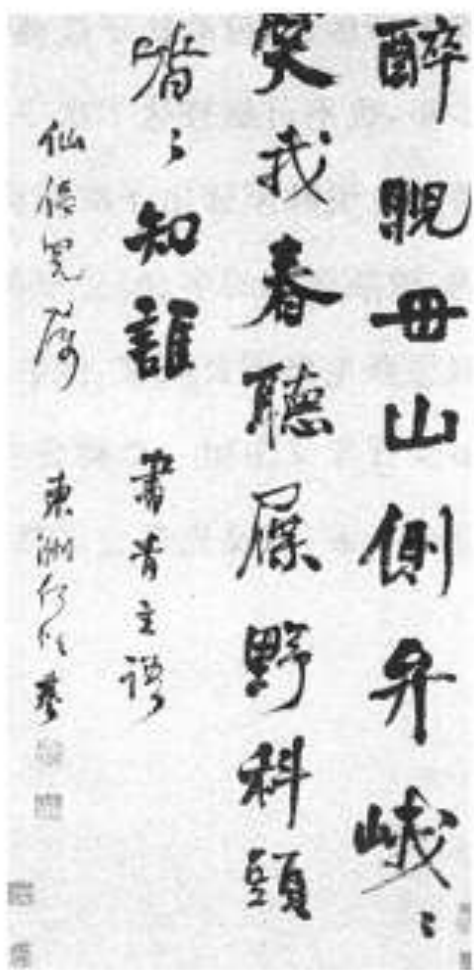 醉睨毌山側弁峨〻
笑我春聽屧野科頭
〻知誰 書青主語
仙兄屬 東洲何紹基